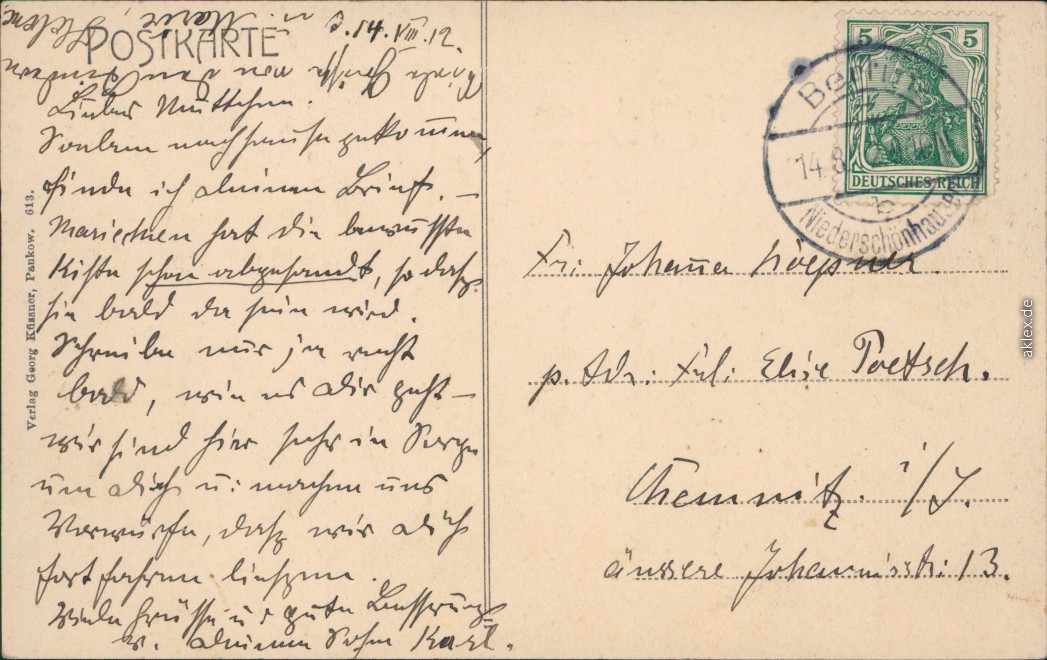 POSTKARTE
d. 14. VIII. 12.
Liebes Muttchen.
Soeben nachhause gekommen,
finde ich deinen Brief. –
Mariechen hat die bewusste
Kiste schon abgesandt, so dass
sie bald da sein wird.
Schreibe mir ja recht
bald, wie es dir geht –
wir sind hier sehr in Sorge
um dich u: machen uns
Vorwürfe, dass wir dich
fortfahren liessen.
Viele Grüsse u: gute Besserung
v. deinem Sohn Karl.
Viele Grüsse von den Kindern
u. Marie, Helene
Verlag Georg Küssner, Pankow. 613.
5 5
DEUTSCHES REICH
Berlin
14.8.
b
Niederschönhausen
Fr: Johanna
p. Adr: Frl: Elise Poetsch.
Chemnitz. i/S.
äussere Johannisstr: 13.
aklex.de